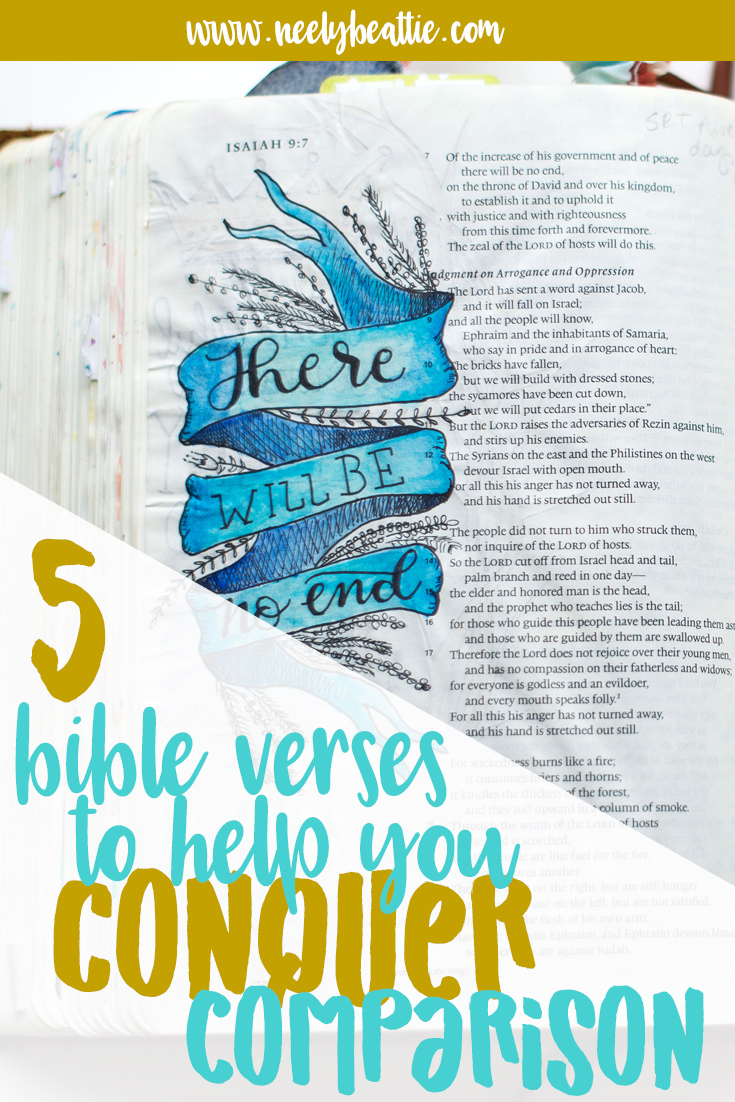 www.neelybeattie.com
SRT
ISAIAH 9:7
7 Of the increase of his government and of peace
there will be no end,
on the throne of David and over his kingdom,
to establish it and to uphold it
with justice and with righteousness
from this time forth and forevermore.
The zeal of the LORD of hosts will do this.
dgment on Arrogance and Oppression
The Lord has sent a word against Jacob,
and it will fall on Israel;
9 and all the people will know,
Ephraim and the inhabitants of Samaria,
who say in pride and in arrogance of heart:
10 The bricks have fallen,
but we will build with dressed stones;
the sycamores have been cut down,
but we will put cedars in their place."
11 But the LORD raises the adversaries of Rezin against him,
and stirs up his enemies.
12 The Syrians on the east and the Philistines on the west
devour Israel with open mouth.
For all this his anger has not turned away,
and his hand is stretched out still.
The people did not turn to him who struck them,
nor inquire of the LORD of hosts.
14 So the LORD cut off from Israel head and tail,
palm branch and reed in one day—
15 the elder and honored man is the head,
and the prophet who teaches lies is the tail;
16 for those who guide this people have been leading them ast
and those who are guided by them are swallowed up.
17 Therefore the Lord does not rejoice over their young men,
and has no compassion on their fatherless and widows;
for everyone is godless and an evildoer,
and every mouth speaks folly.¹
For all this his anger has not turned away,
and his hand is stretched out still.
For wickedness burns like a fire;
it consumes briers and thorns;
it kindles the thickets of the forest,
and they roll upward in a column of smoke.
Through the wrath of the LORD of hosts
is scorched,
are like fuel for the fire
another.
on the right, but are still hungry,
on the left, but are not satisfied
flesh of his own arm,
Ephraim, and Ephraim devours Man
are against Judah.
There
WILL BE
no end
5
bible verses
to help you
CONQUER
COMPARISON